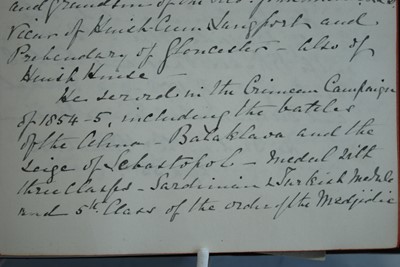 and Grandson of the Rev.
Vicar of Huish Cum Langport and
Prebendary of Gloucester - also of
Huish House -
He served in the Crimean Campaign
of 1854-5, including the battles
of the Alma - Balaklava and the
seige of Sebastopol - Medal with
three Clasps - Sardinian & Turkish Medals
and 5th Class of the order of the Medjidie